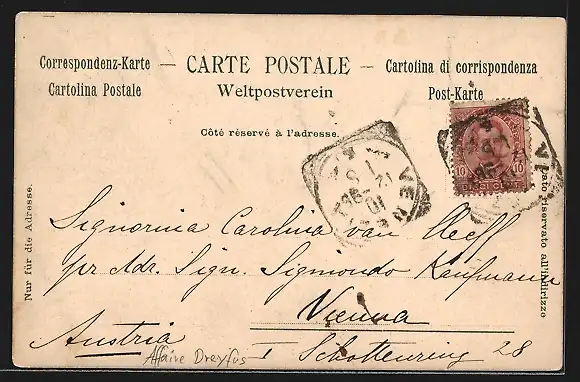 Correspondenz-Karte — CARTE POSTALE — Cartolina di corrispondenza
Cartolina Postale Weltpostverein Post-Karte
Côté réservé à l'adresse.
10 10
DIECI CENT
Nur für die Adresse.
riservato all'indirizzo
Signorina Carolina van
pr Adr. Sign. Sigmondo Kaufmann
Vienna
Austria
I Schottenring 28
Affaire Dreyfus